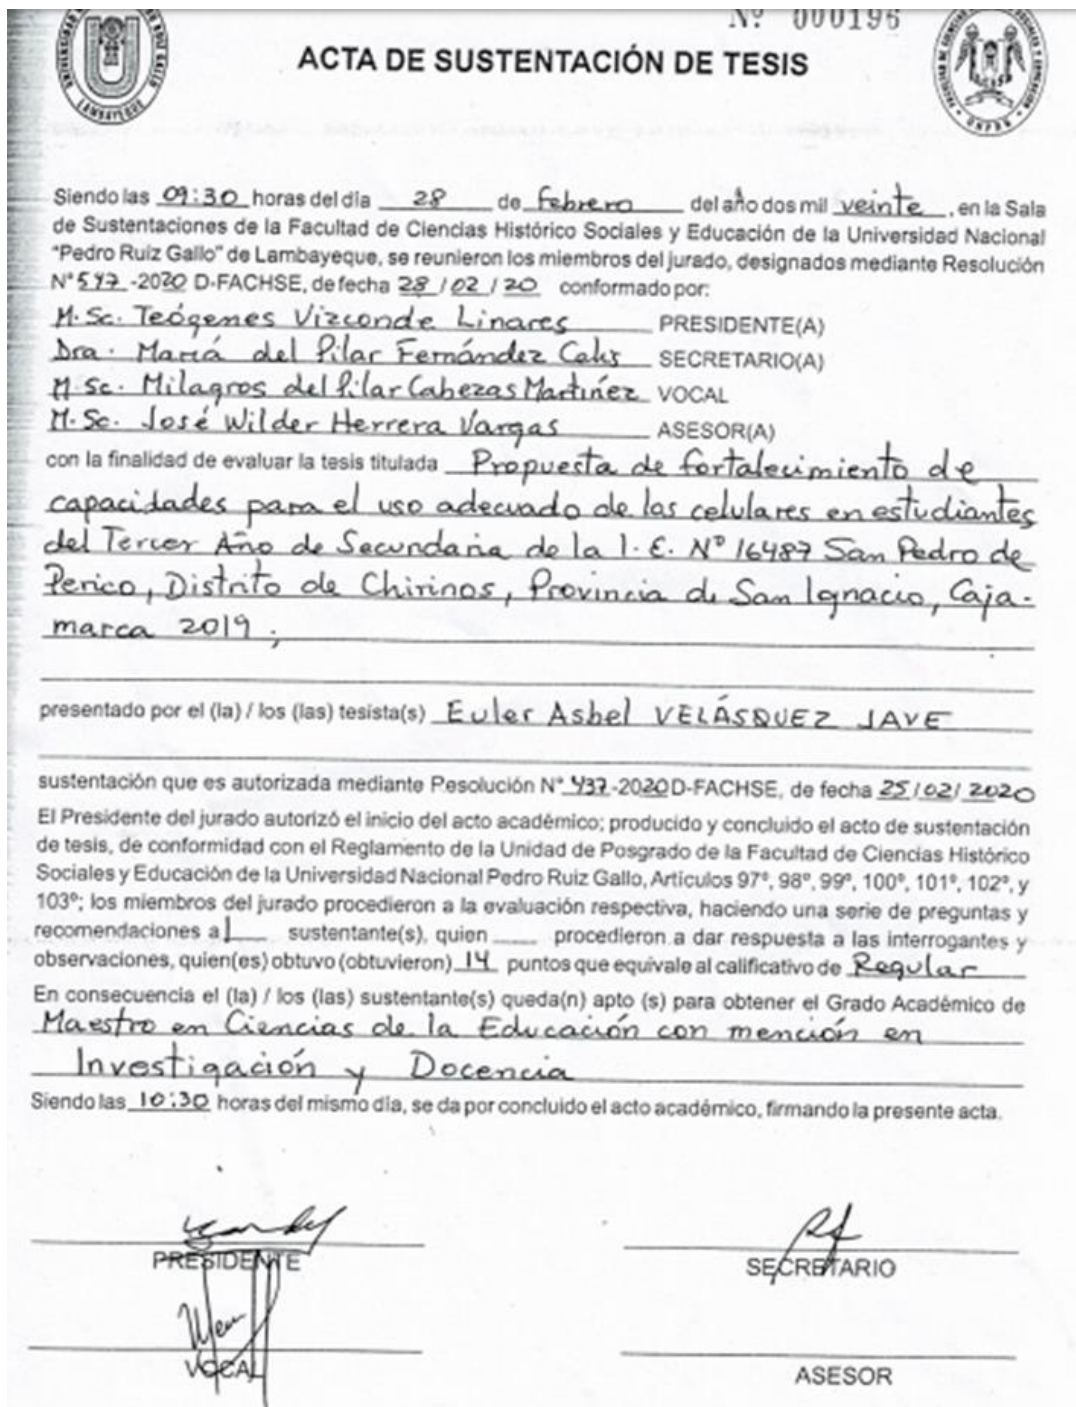 Nº 000196
ACTA DE SUSTENTACIÓN DE TESIS
LAMBAYEQUE
Siendo las 09:30 horas del día 28 de febrero del año dos mil veinte, en la Sala
de Sustentaciones de la Facultad de Ciencias Histórico Sociales y Educación de la Universidad Nacional
"Pedro Ruiz Gallo" de Lambayeque, se reunieron los miembros del jurado, designados mediante Resolución
N° 547-2020 D-FACHSE, de fecha 28/02/20 conformado por:
M.Sc. Teógenes Vizconde Linares PRESIDENTE(A)
Dra. María del Pilar Fernández Celis SECRETARIO(A)
M.Sc. Milagros del Pilar Cabezas Martínez VOCAL
M.Sc. José Wilder Herrera Vargas ASESOR(A)
con la finalidad de evaluar la tesis titulada Propuesta de fortalecimiento de
capacidades para el uso adecuado de los celulares en estudiantes
del Tercer Año de Secundaria de la I.E. Nº 16487 San Pedro de
Perico, Distrito de Chirinos, Provincia de San Ignacio, Caja-
marca 2019;
presentado por el (la) / los (las) tesista(s) Euler Asbel VELÁSQUEZ JAVE
sustentación que es autorizada mediante Resolución N° 437-2020 D-FACHSE, de fecha 25/02/2020
El Presidente del jurado autorizó el inicio del acto académico; producido y concluido el acto de sustentación
de tesis, de conformidad con el Reglamento de la Unidad de Posgrado de la Facultad de Ciencias Histórico
Sociales y Educación de la Universidad Nacional Pedro Ruiz Gallo, Artículos 97º, 98º, 99º, 100º, 101º, 102º, y
103º; los miembros del jurado procedieron a la evaluación respectiva, haciendo una serie de preguntas y
recomendaciones al sustentante(s), quien ____ procedieron a dar respuesta a las interrogantes y
observaciones, quien(es) obtuvo (obtuvieron) 14 puntos que equivale al calificativo de Regular
En consecuencia el (la) / los (las) sustentante(s) queda(n) apto (s) para obtener el Grado Académico de
Maestro en Ciencias de la Educación con mención en
Investigación y Docencia
Siendo las 10:30 horas del mismo día, se da por concluido el acto académico, firmando la presente acta.
PRESIDENTE
SECRETARIO
VOCAL
ASESOR